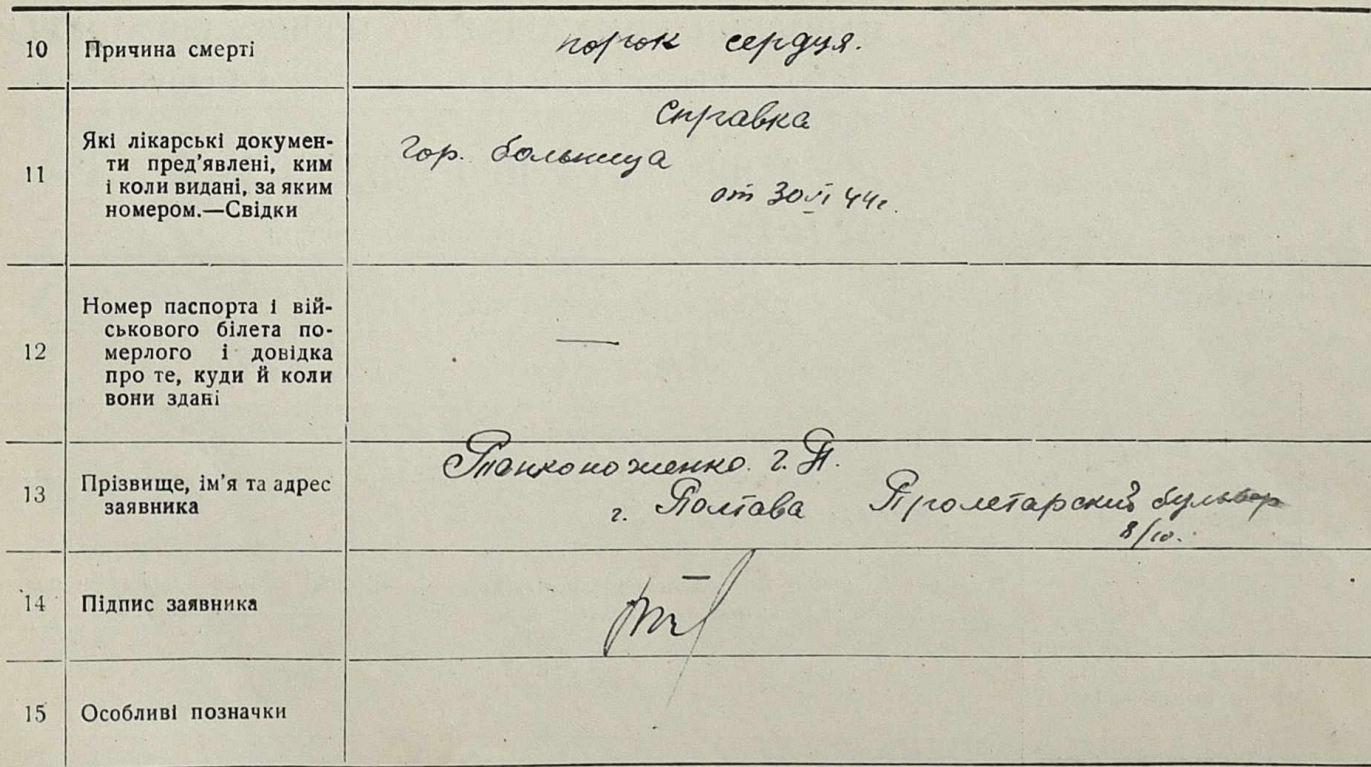 10 Причина смерті порок сердця.
11 Які лікарські докумен-
ти пред'явлені, ким
і коли видані, за яким
номером.—Свідки
Справка
Гор. больница
от 30 VI 44г.
12 Номер паспорта і вій-
ськового білета по-
мерлого і довідка
про те, куди й коли
вони здані
—
13 Прізвище, ім'я та адрес
заявника
Тонконоженко Г. П.
г. Полтава Пролетарский бульвар
8/10.
14 Підпис заявника
15 Особливі позначки